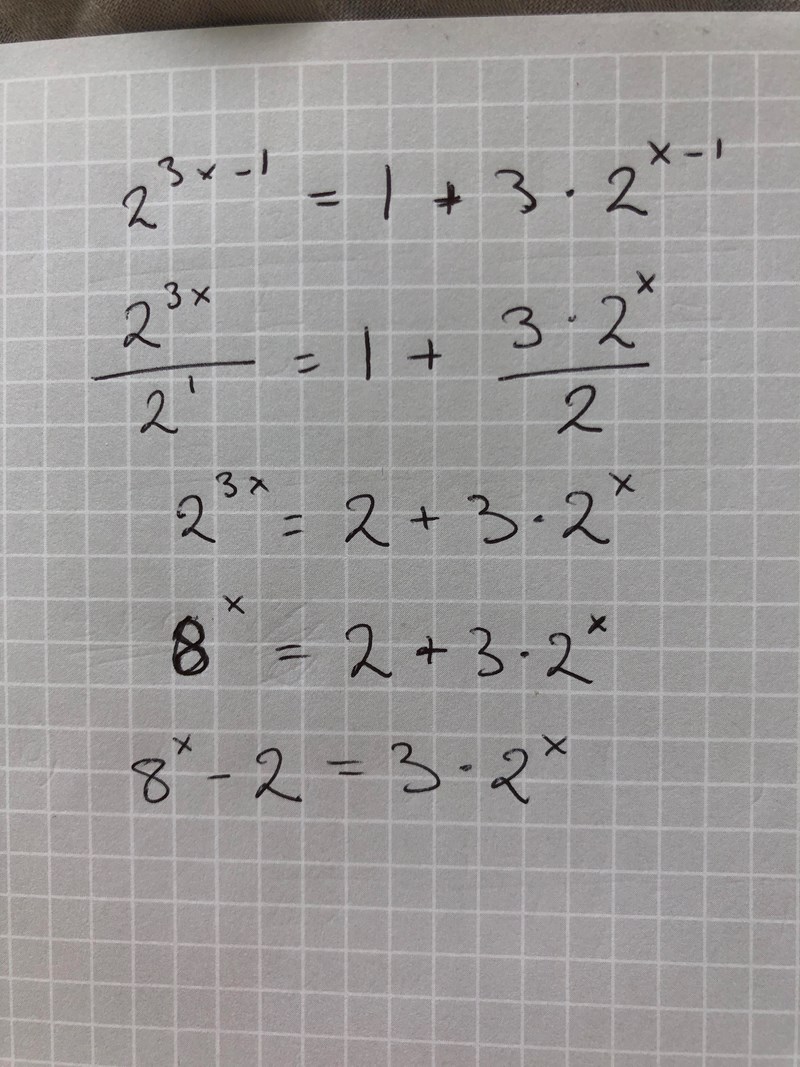 2^{3x-1} = 1 + 3 · 2^{x-1}
\frac{2^{3x}}{2^1} = 1 + \frac{3 · 2^x}{2}
2^{3x} = 2 + 3 · 2^x
8^x = 2 + 3 · 2^x
8^x - 2 = 3 · 2^x